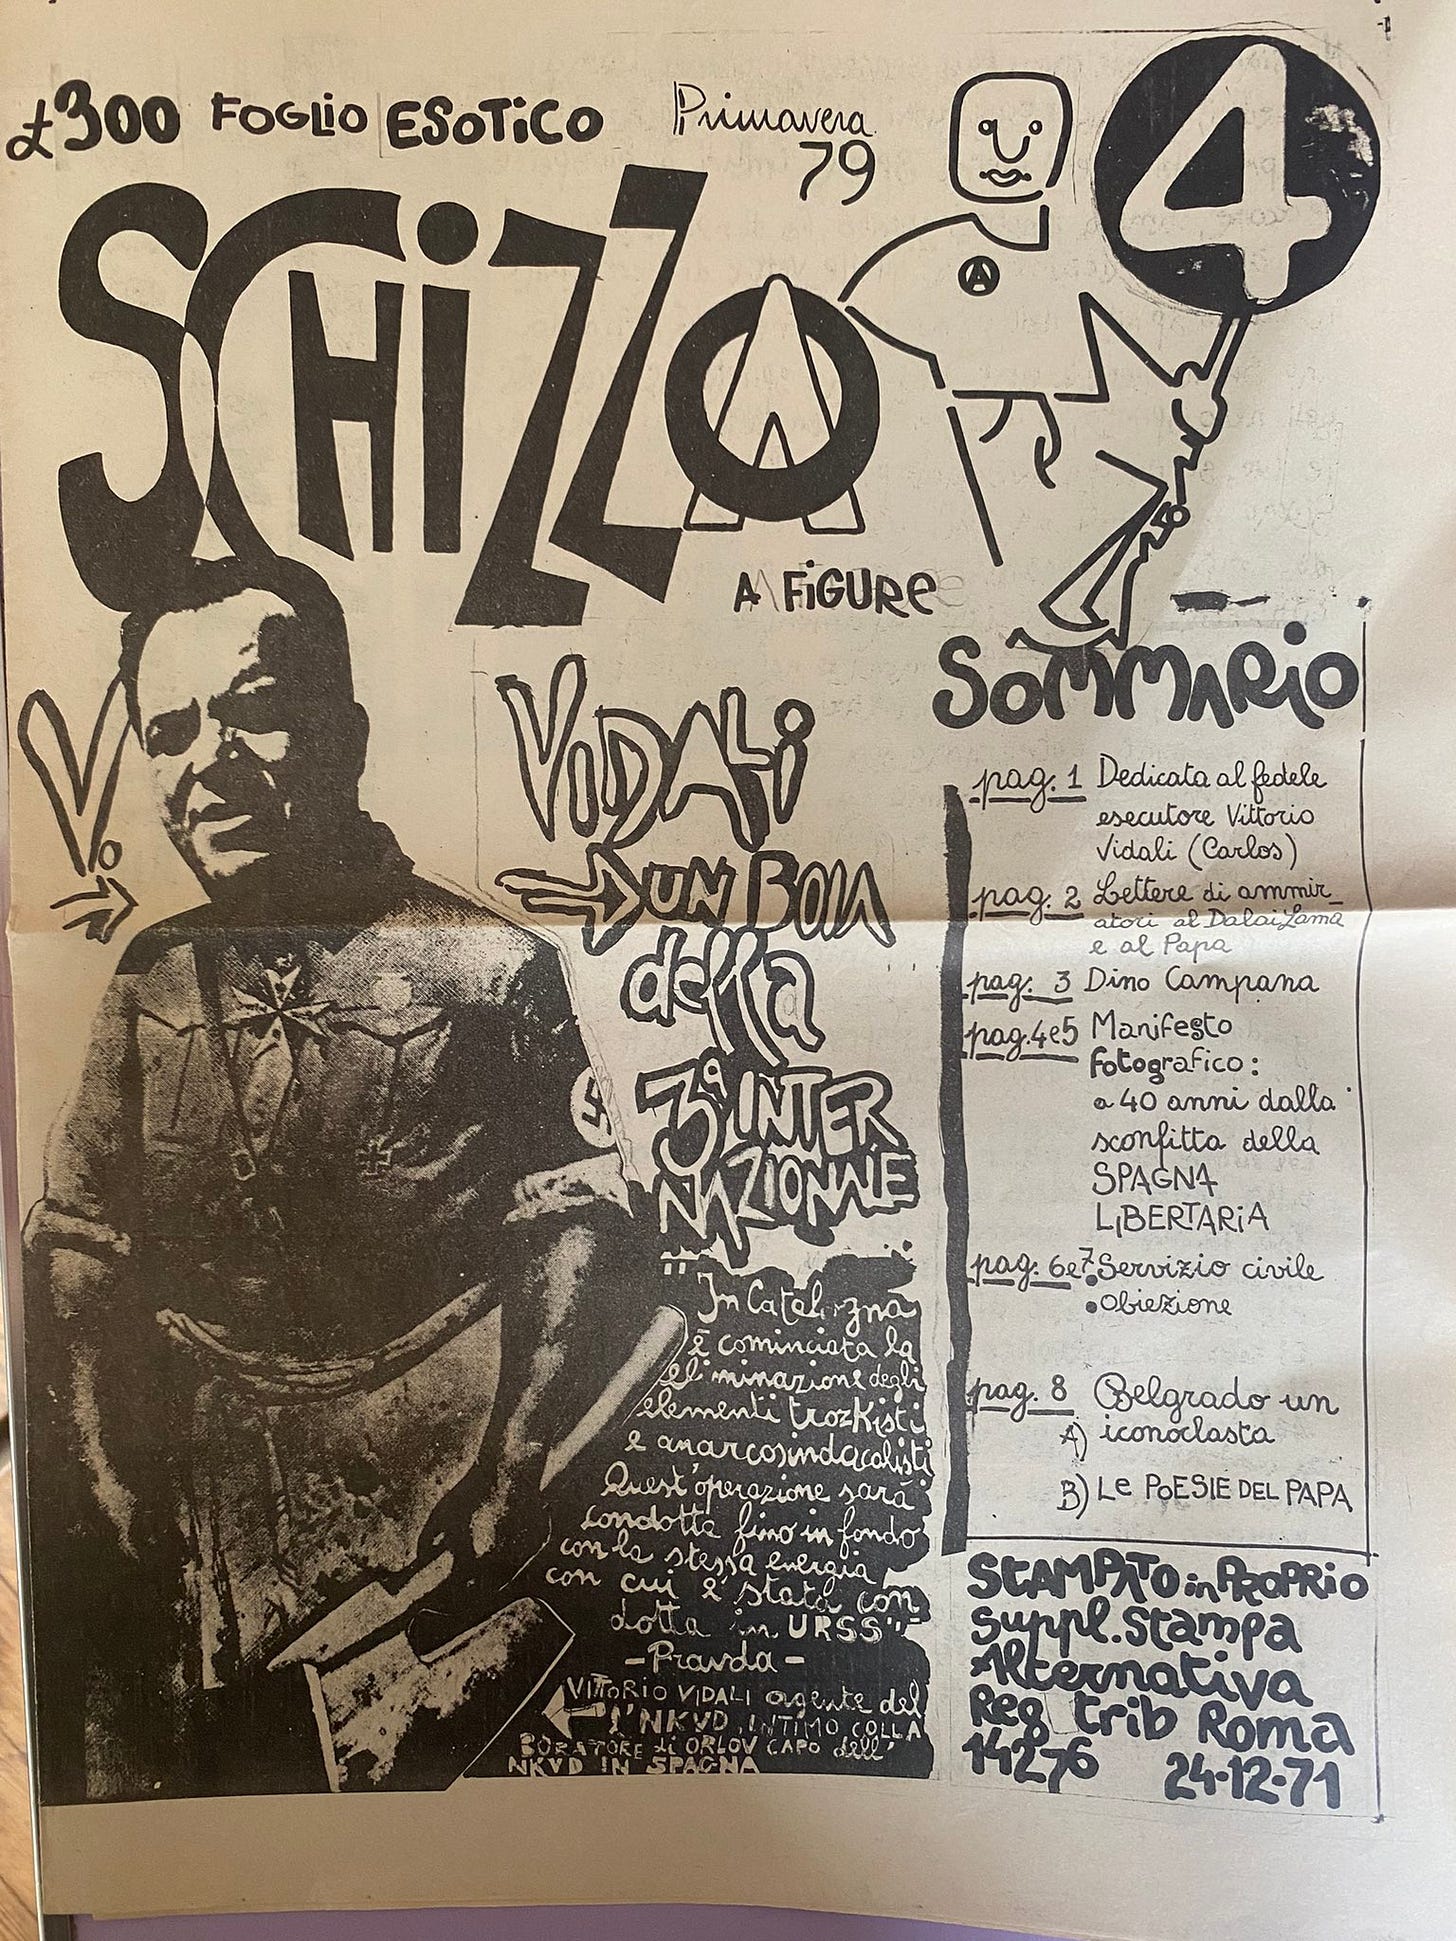 £300 FOGLIO ESOTICO Primavera
79
4
SCHIZZO
A FIGURE
V.
VIDALI
UN BOIA
della
3ª INTER
NAZIONALE
"In Catalogna
è cominciata la
eliminazione degli
elementi trozkisti
e anarcosindacalisti
Quest'operazione sarà
condotta fino in fondo
con la stessa energia
con cui è stata con
dotta in URSS"
-Pravda-
VITTORIO VIDALI agente del
l'NKVD, INTIMO COLLA
BORATORE di ORLOV CAPO dell'
NKVD IN SPAGNA
SOMMARIO
pag. 1 Dedicata al fedele
esecutore Vittorio
Vidali (Carlos)
pag. 2 Lettere di ammir_
atori al Dalai Lama
e al Papa
pag. 3 Dino Campana
pag. 4e5 Manifesto
fotografico:
a 40 anni dalla
sconfitta della
SPAGNA
LIBERTARIA
pag. 6e7 Servizio civile
• Obiezione
pag. 8 Belgrado un
A) iconoclasta
B) Le POESIE DEL PAPA
STAMPATO in PROPRIO
suppl. Stampa
Alternativa
Reg trib Roma
14276 24-12-71